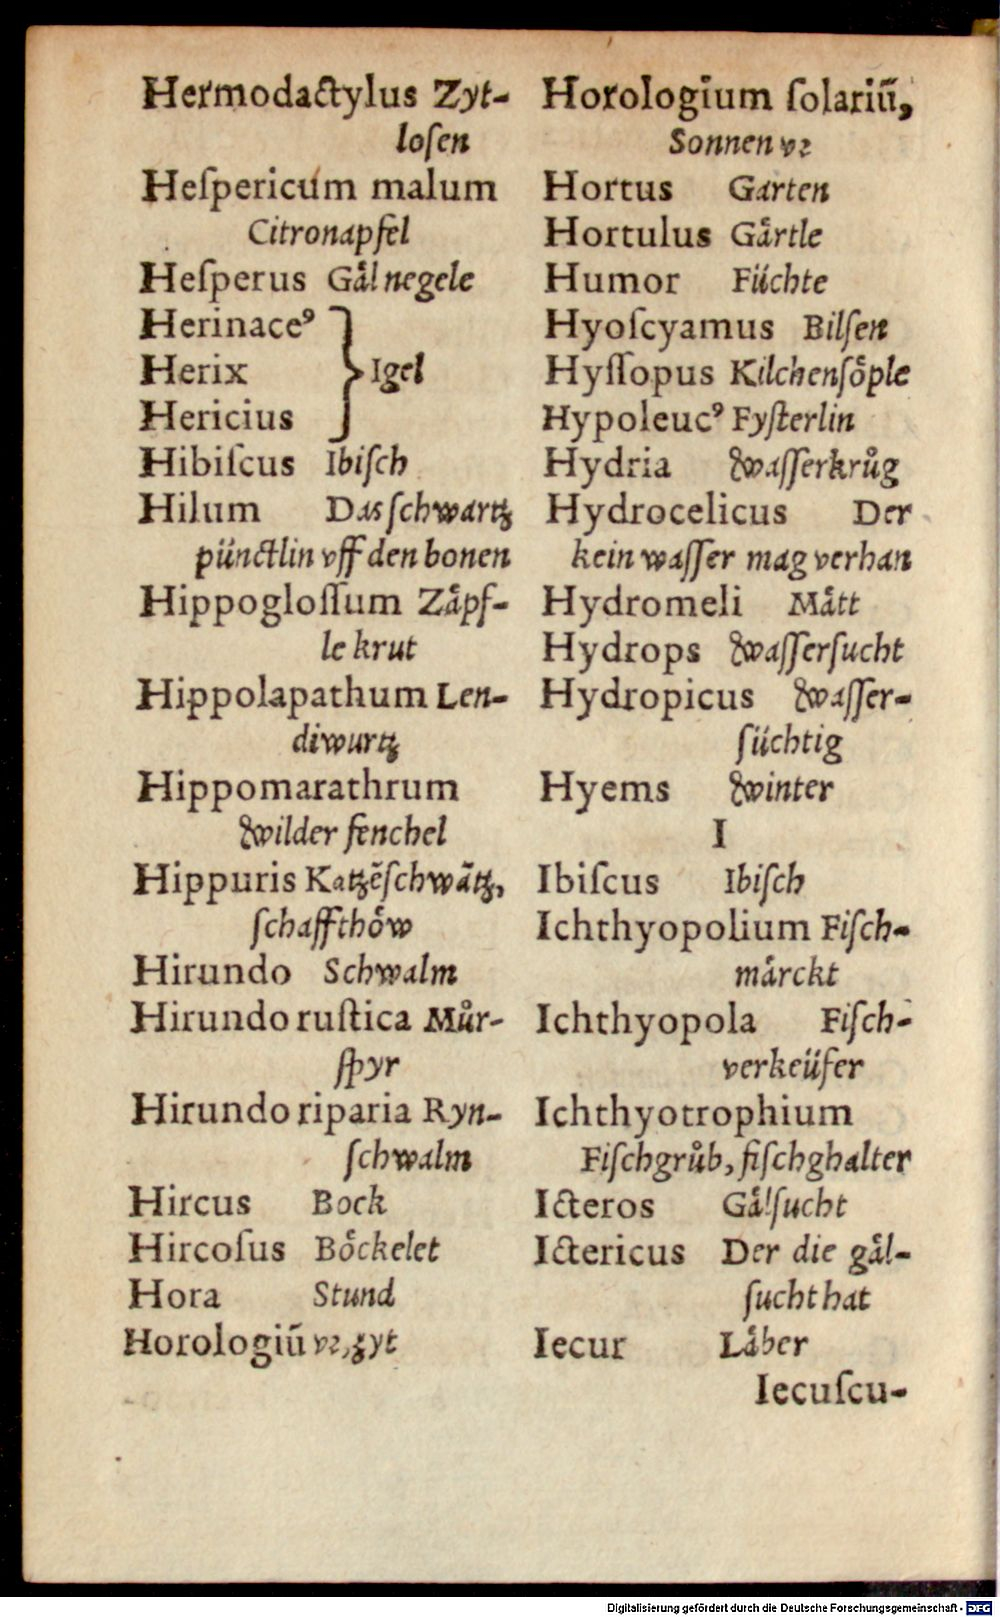 Hermodactylus Zyt-
loſen
Heſpericum malum
Citronapfel
Heſperus Gaͤl negele
Herinaceꝰ
Herix Igel
Hericius
Hibiſcus Ibiſch
Hilum Das ſchwartz
pünctlin vff den bonen
Hippogloſſum Zaͤpf-
le krut
Hippolapathum Len-
diwurtz
Hippomarathrum
Wilder fenchel
Hippuris Katzẽſchwãtz,
ſchaffthoͤw
Hirundo Schwalm
Hirundo ruſtica Muͦr-
ſpyr
Hirundo riparia Ryn-
ſchwalm
Hircus Bock
Hircoſus Boͤckelet
Hora Stund
Horologiũ vꝛ, zyt
Horologium ſolariũ,
Sonnen vꝛ
Hortus Garten
Hortulus Gaͤrtle
Humor Füchte
Hyoſcyamus Bilſen
Hyſſopus Kilchenſoͤple
Hypoleucꝰ Fyſterlin
Hydria Waſſerkruͦg
Hydrocelicus Der
kein waſſer mag verhan
Hydromeli Maͤtt
Hydrops Waſſerſucht
Hydropicus Waſſer-
ſüchtig
Hyems Winter
I
Ibiſcus Ibiſch
Ichthyopolium Fiſch-
maͤrckt
Ichthyopola Fiſch-
verkeüfer
Ichthyotrophium
Fiſchgruͦb, fiſchghalter
Icteros Gaͤlſucht
Ictericus Der die gaͤl-
ſucht hat
Iecur Laͤber
Iecuſcu-
Digitalisierung gefördert durch die Deutsche Forschungsgemeinschaft - DFG